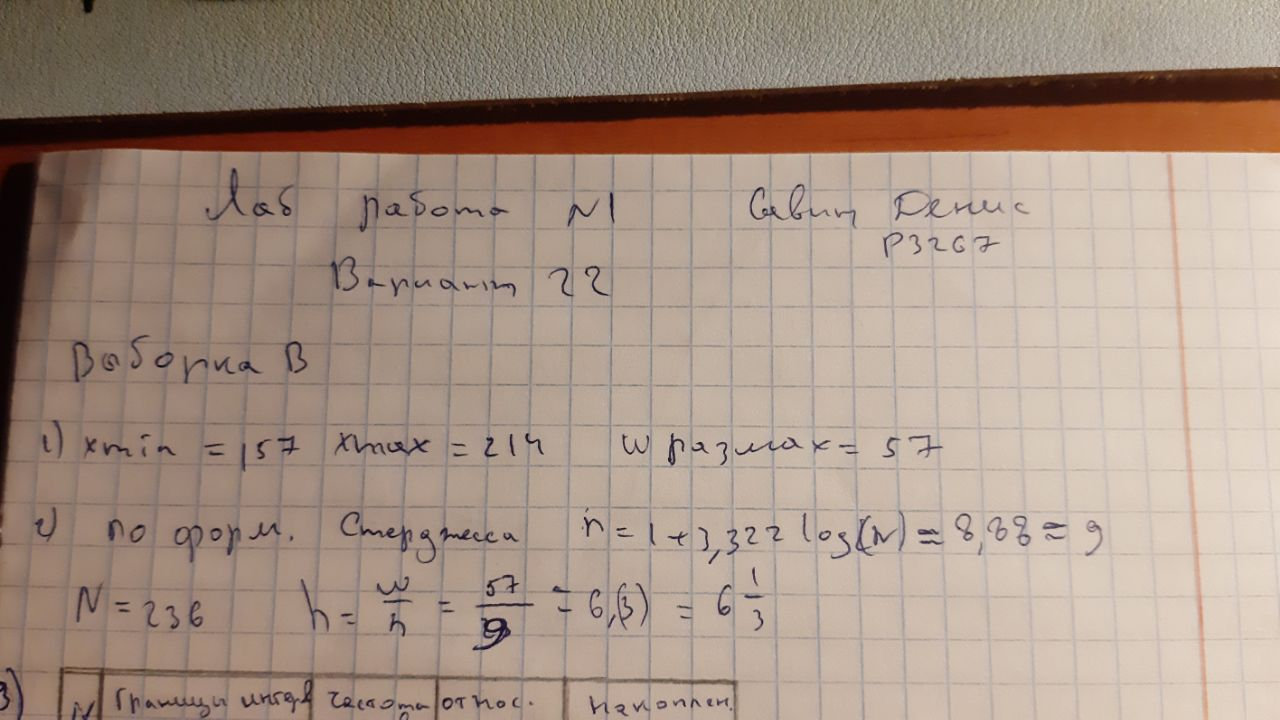 Лаб работа N1 Савин Денис
P3267
Вариант 22
Выборка B
1) xmin = 157 xmax = 214 W размах = 57
2) по форм. Стерджесса n = 1 + 3,322 log(N) = 8,88 = 9
N = 236 h = w/n = 57/9 = 6,(3) = 6 1/3
3) N Границы интерв частота относ. Накоплен.